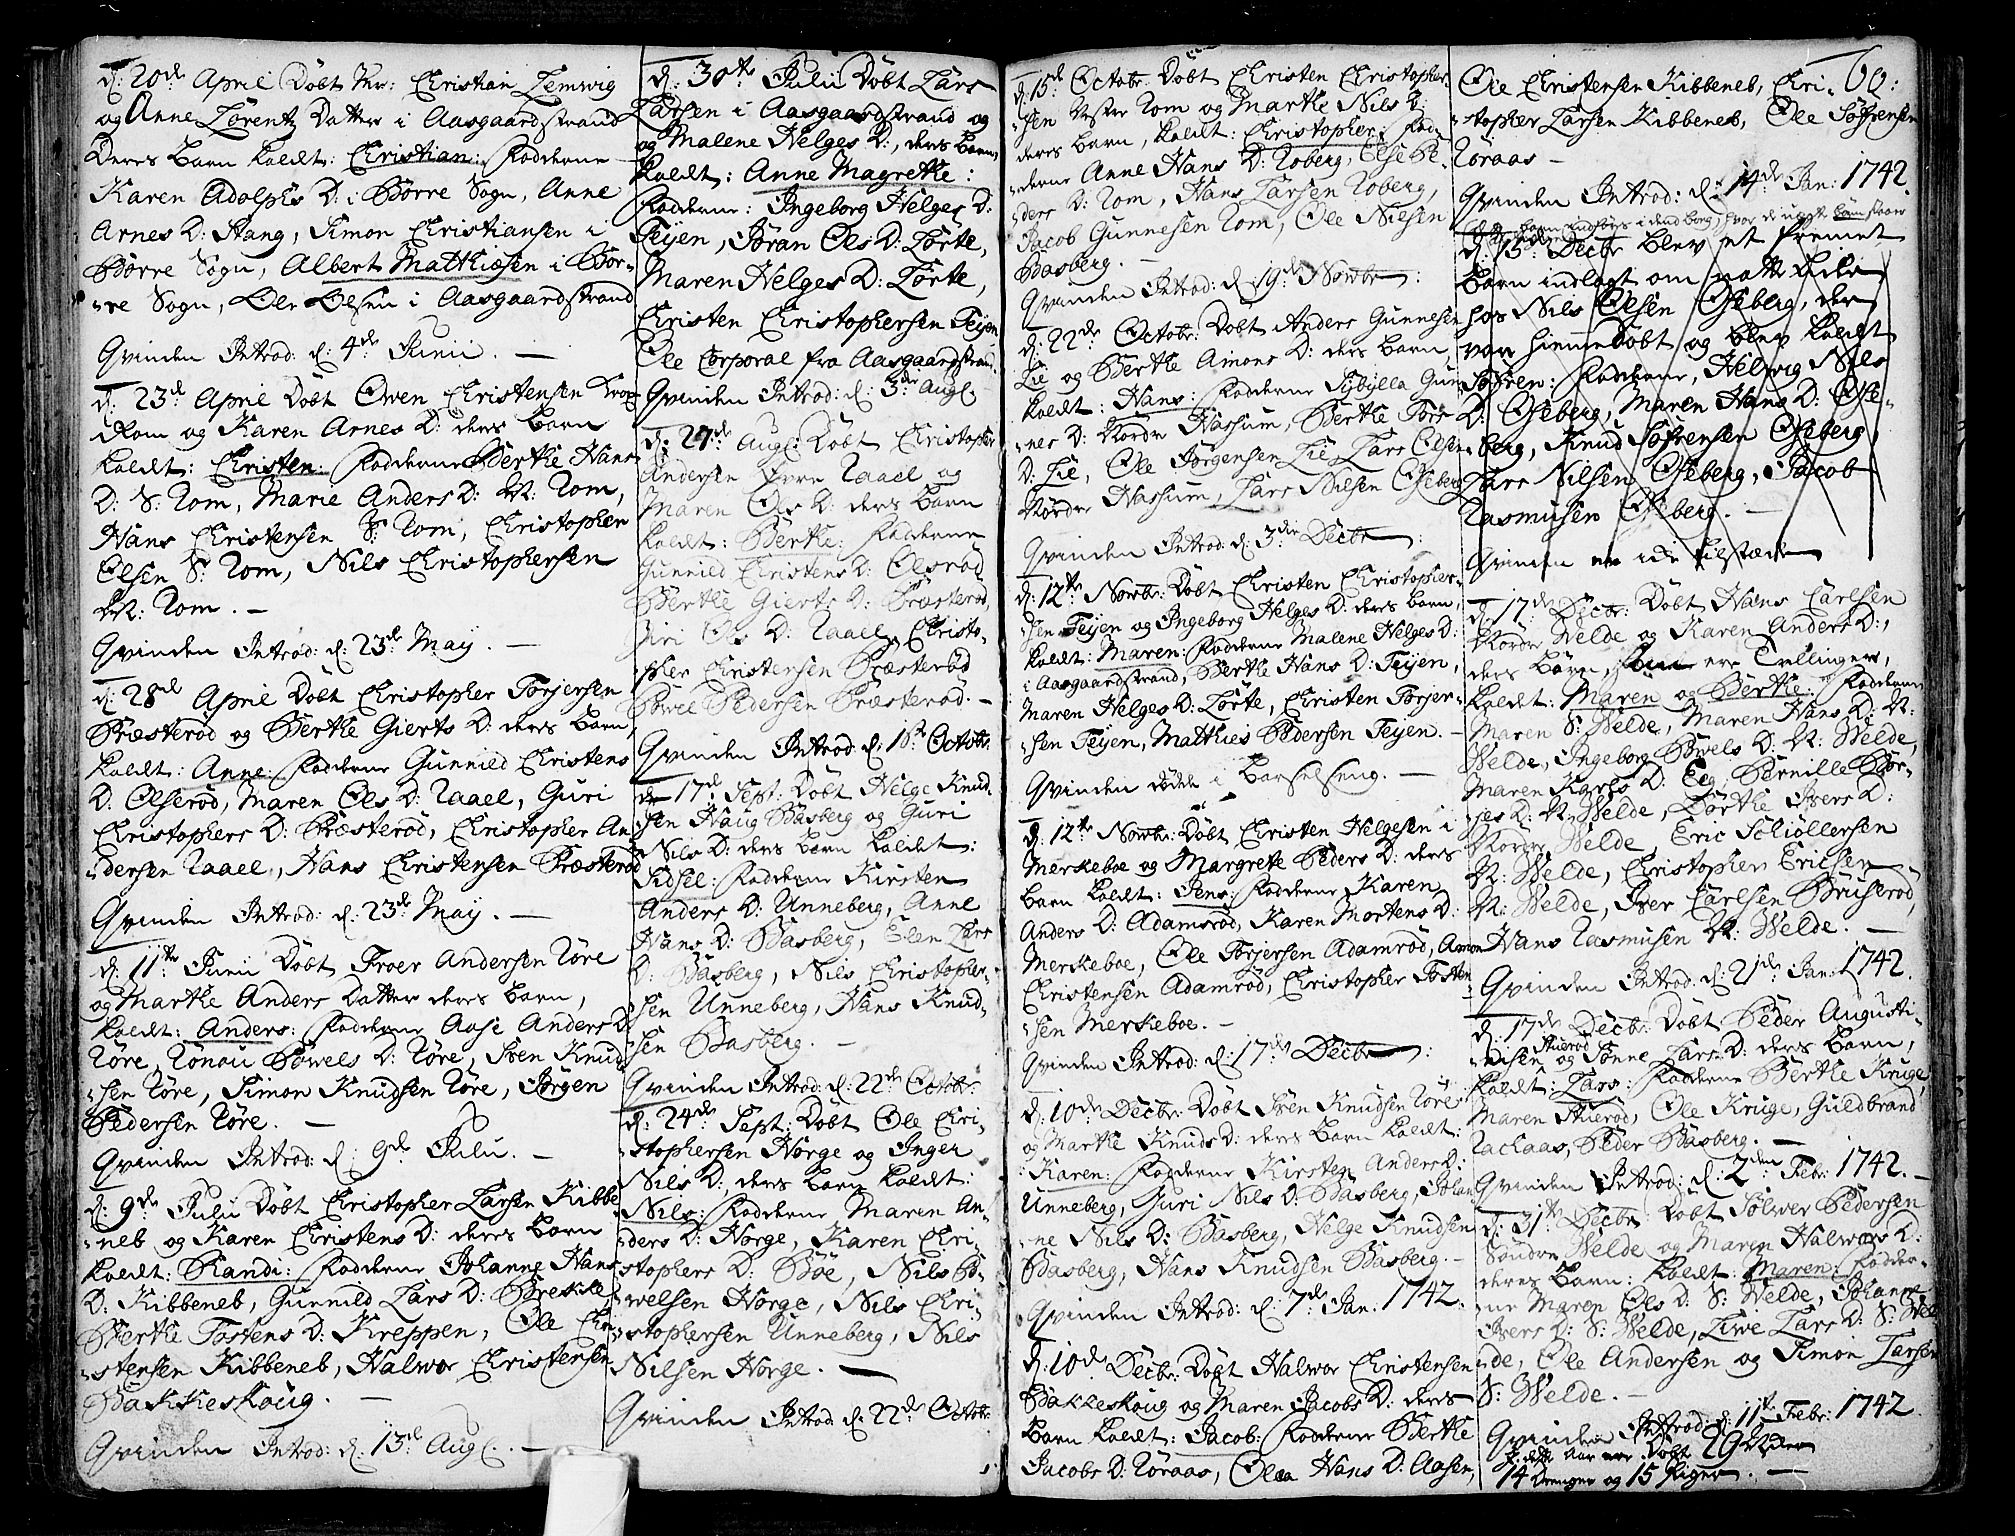 d: 20de April Döbt Mr: Christian Lemwig
og Anne Lorentz Datter i Aasgaardstrand
Deres Barn kaldt: Christian: Fadderne
Karen Adolphs D: i Börre Sogn, Anne
Arnes D: Stang, Simon Christiansen i
Börre Sogn, Albert Matthiesen i Bör-
-re Sogn, Ole Olsen i Aasgaardstrand
Qvinden Introd: d: 4de Junii. —
d: 23de April Döbt Owen Christensen
Rom og Karen Arnes D: deres Barn
kaldt: Christen: Fadderne Berthe Hans
D: S: Rom, Marie Anders D: N: Rom,
Hans Christensen S: Rom, Christopher
Olsen S: Rom, Nils Christophersen
N: Rom. —
Qvinden Introd: d: 23de May. —
d: 28de April Döbt Christopher Torjersen
Præsteröd og Berthe Gierts D: deres Barn,
kaldt: Anne: Fadderne Gunnild Christens
D: Olseröd, Maren Ols D: Raael, Guri
Christophers D: Præsteröd, Christopher An
-dersen Raael, Hans Christensen Præsteröd
Qvinden Introd: d: 23de May. —
d: 11te Junii Döbt Froer Andersen Röre
og Marthe Anders Datter deres Barn,
kaldt: Anders: Fadderne Aase Anders D:
Röre, Rönau Powels D: Röre, Sven Knud
-sen Röre, Simon Knudsen Röre, Jörgen
Pedersen Röre. —
Qvinden Introd: d: 9de Julii. —
d: 9de Julii Döbt Christopher Larsen Kibbe
-neb og Karen Christens D: deres Barn
kaldt: Randi: Fadderne Johanne Hans
D: Kibbeneb, Gunnild Lars D: Breskle
Berthe Tostens D: Kreppen, Ole Chri
-stensen Kibbeneb, Halwor Christensen
Bakkeskoug. —
Qvinden Introd: d: 13de Aug:. —
d: 30te Julii Döbt Lars
Larsen i Aasgaardstrand og
og Malene Helges D:, deres Barn,
kaldt: Anne Magrethe:
Fadderne: Ingeborg Helges D:
Teyen, Jöran Ols D: Lörte,
Maren Helges D: Lörte,
Christen Christophersen Teyen
Ole Corporal fra Aasgaardstrand.
Qvinden Introd: d: 3de Aug:
d: 27de Aug: Döbt Christopher
Andersen Raael og
Maren Ols D: deres Barn
kaldt: Berthe: Fadderne
Gunnild Christens D: Olsröd
Berthe Gierts D: Præsteröd,
Siri Ols D: Raael, Christo-
pher Christensen Præsteröd
Powel Pedersen Præsteröd. —
Qvinden Introd: d: Octobr.
d: 17de Sept: Döbt Helge Knud-
sen Haug Basberg og Guri
Nils D: deres Barn kaldet:
Sidsel: Fadderne Kirsten
Anders D: Unneberg, Anne
Hans D: Basberg, Elen Lars
D: Basberg, Nils Christopher-
sen Unneberg, Hans Knud-
sen Basberg. —
Qvinden Introd: d: 22de Octobr:
d: 24de Sept: Döbt Ole Chri-
stophersen Horge og Inger
Nils D:, deres Barn kaldt:
Nils: Fadderne Maren An-
-ders D: Horge, Karen Chri-
stophers D: Böe, Nils Po-
-welsen Horge, Nils Chri-
-stophersen Unneberg, Nils
Nilsen Horge. —
Qvinden Introd: d: 22de Octobr:
d: 15de Octobr: Döbt Christen Christopher-
-sen Vester Rom og Marthe Nils D:
deres Barn, kaldt: Christopher: Fad-
derne Anne Hans D: Roberg, Else Pe-
-ders D: Rom, Hans Larsen Roberg,
Jacob Gunnesen Rom, Ole Nilsen
Basberg. —
Qvinden Introd: d: 19de Novbr:
d: 22de Octobr: Döbt Anders Gunnesen
Lie og Berthe Amons D: ders Barn,
kaldt: Hans: Fadderne Sybylla Gun
-nes D: Nordre Hassum, Berthe Tors
D: Lie, Ole Jörgensen Lie, Lars Olsen
Nordre Hassum, Lars Nilsen Oseberg
Qvinden Introd: d: 3die Decbr:
d: 12te Novbr: Döbt Christen Christopher-
-sen Teyen og Ingeborg Helges D: ders Barn,
kaldt: Maren: Fadderne Malene Helges D:
i Aasgaardstrand, Berthe Hans D: Teyen,
Maren Helges D: Lörte, Christen Torjer-
-sen Teyen, Matthies Pedersen Teyen. —
Qvinden dödde i Barselseng. —
d: 12te Novbr: Döbt Christen Helgesen i
Merkeboe og Margrete Peders D: ders
Barn kaldt: Jens: Fadderne Karen
Anders D: Adamsröd, Karen Mortens D:
Merkeboe, Ole Torjersen Adamröd, Amon
Christensen Adamröd, Christopher Tosten
-sen Merkeboe. —
Qvinden Introd: d: 17de Decbr:
d: 10de Decbr: Döbt Sven Knudsen Röre
og Marthe Knuds D: deres Barn kaldt:
Karen: Fadderne Kirsten Anders D:
Unneberg, Guri Nils D: Basberg, Johan
-ne Nils D: Basberg, Helge Knudsen
Basberg, Hans Knudsen Basberg. —
Qvinden Introd: d: 7de Jan: 1742.
d: 10de Decbr: Döbt Halwor Christensen
Bakkeskoug og Maren Jacobs D: ders
Barn kaldt: Jacob: Fadderne Berthe
Jacobs D: Röraas, Olea Hans D: Aasen,
60:
Ole Christensen Kibbeneb, Chri-
-stopher Larsen Kibbeneb, Ole Söfrensen
Röraas —
Qvinden Introd: d: 14de Jan: 1742.
d: 15de Decbr blev et fremmet
Barn indlagt om natte tide
hos Nils Olsen Oseberg, der
var hiemmedöbt og blev kaldt
Söfren: Fadderne, Helwig Nils
D: Oseberg, Maren Hans D: Ose-
-berg, Knud Söfrensen Oseberg,
Lars Nilsen Oseberg, Jacob
Rasmusen Oseberg. —
Qvinden er ikke tilstæde
d: 17de Decbr: Döbt Hans Carlsen
Nordre Welde og Karen Anders D:,
deres Börn, som ere Tvillinger,
kaldt: Maren og Berthe: Fadderne
Maren S: Welde, Maren Hans D: N:
Welde, Ingeborg Powels D: N: Welde,
Maren Karls D: Eeg, Pernille Bör-
-jes D: N: Welde, Dorthe Ivers D:
Nordre Welde, Eric Schiöllersen
N: Welde, Christopher Ericsen
N: Welde, Iver Carlsen Bruseröd,
Hans Rasmusen N: Welde. —
Qvinden Introd: d: 21de Jan: 1742.
d: 17de Decbr: Döbt Peder Augusti-
-nusen Stueröd og Tönne Lars D: deres Barn,
kaldt: Lars: Fadderne Berthe Kruge,
Maren Stueröd, Ole Kruge, Guldbrand
Rachaas, Peder Basberg. —
Qvinden Introd: d: 2den Febr: 1742. —
d: 31te Decbr: Döbt Sölwer Pedersen
Söndre Welde og Maren Halwors D:
deres Barn: kaldt: Maren: Fadder-
-ne Maren Ols D: S: Welde, Johanne
Ivers D: S: Welde, Live Lars D: S: Wel
-de, Ole Andersen og Simon Larsen
S: Welde. —
Qvinden Introd: d: 11te Febr: 1742.
I dette Aar ere Döbt 29
14 Drenger og 15 Piger. —